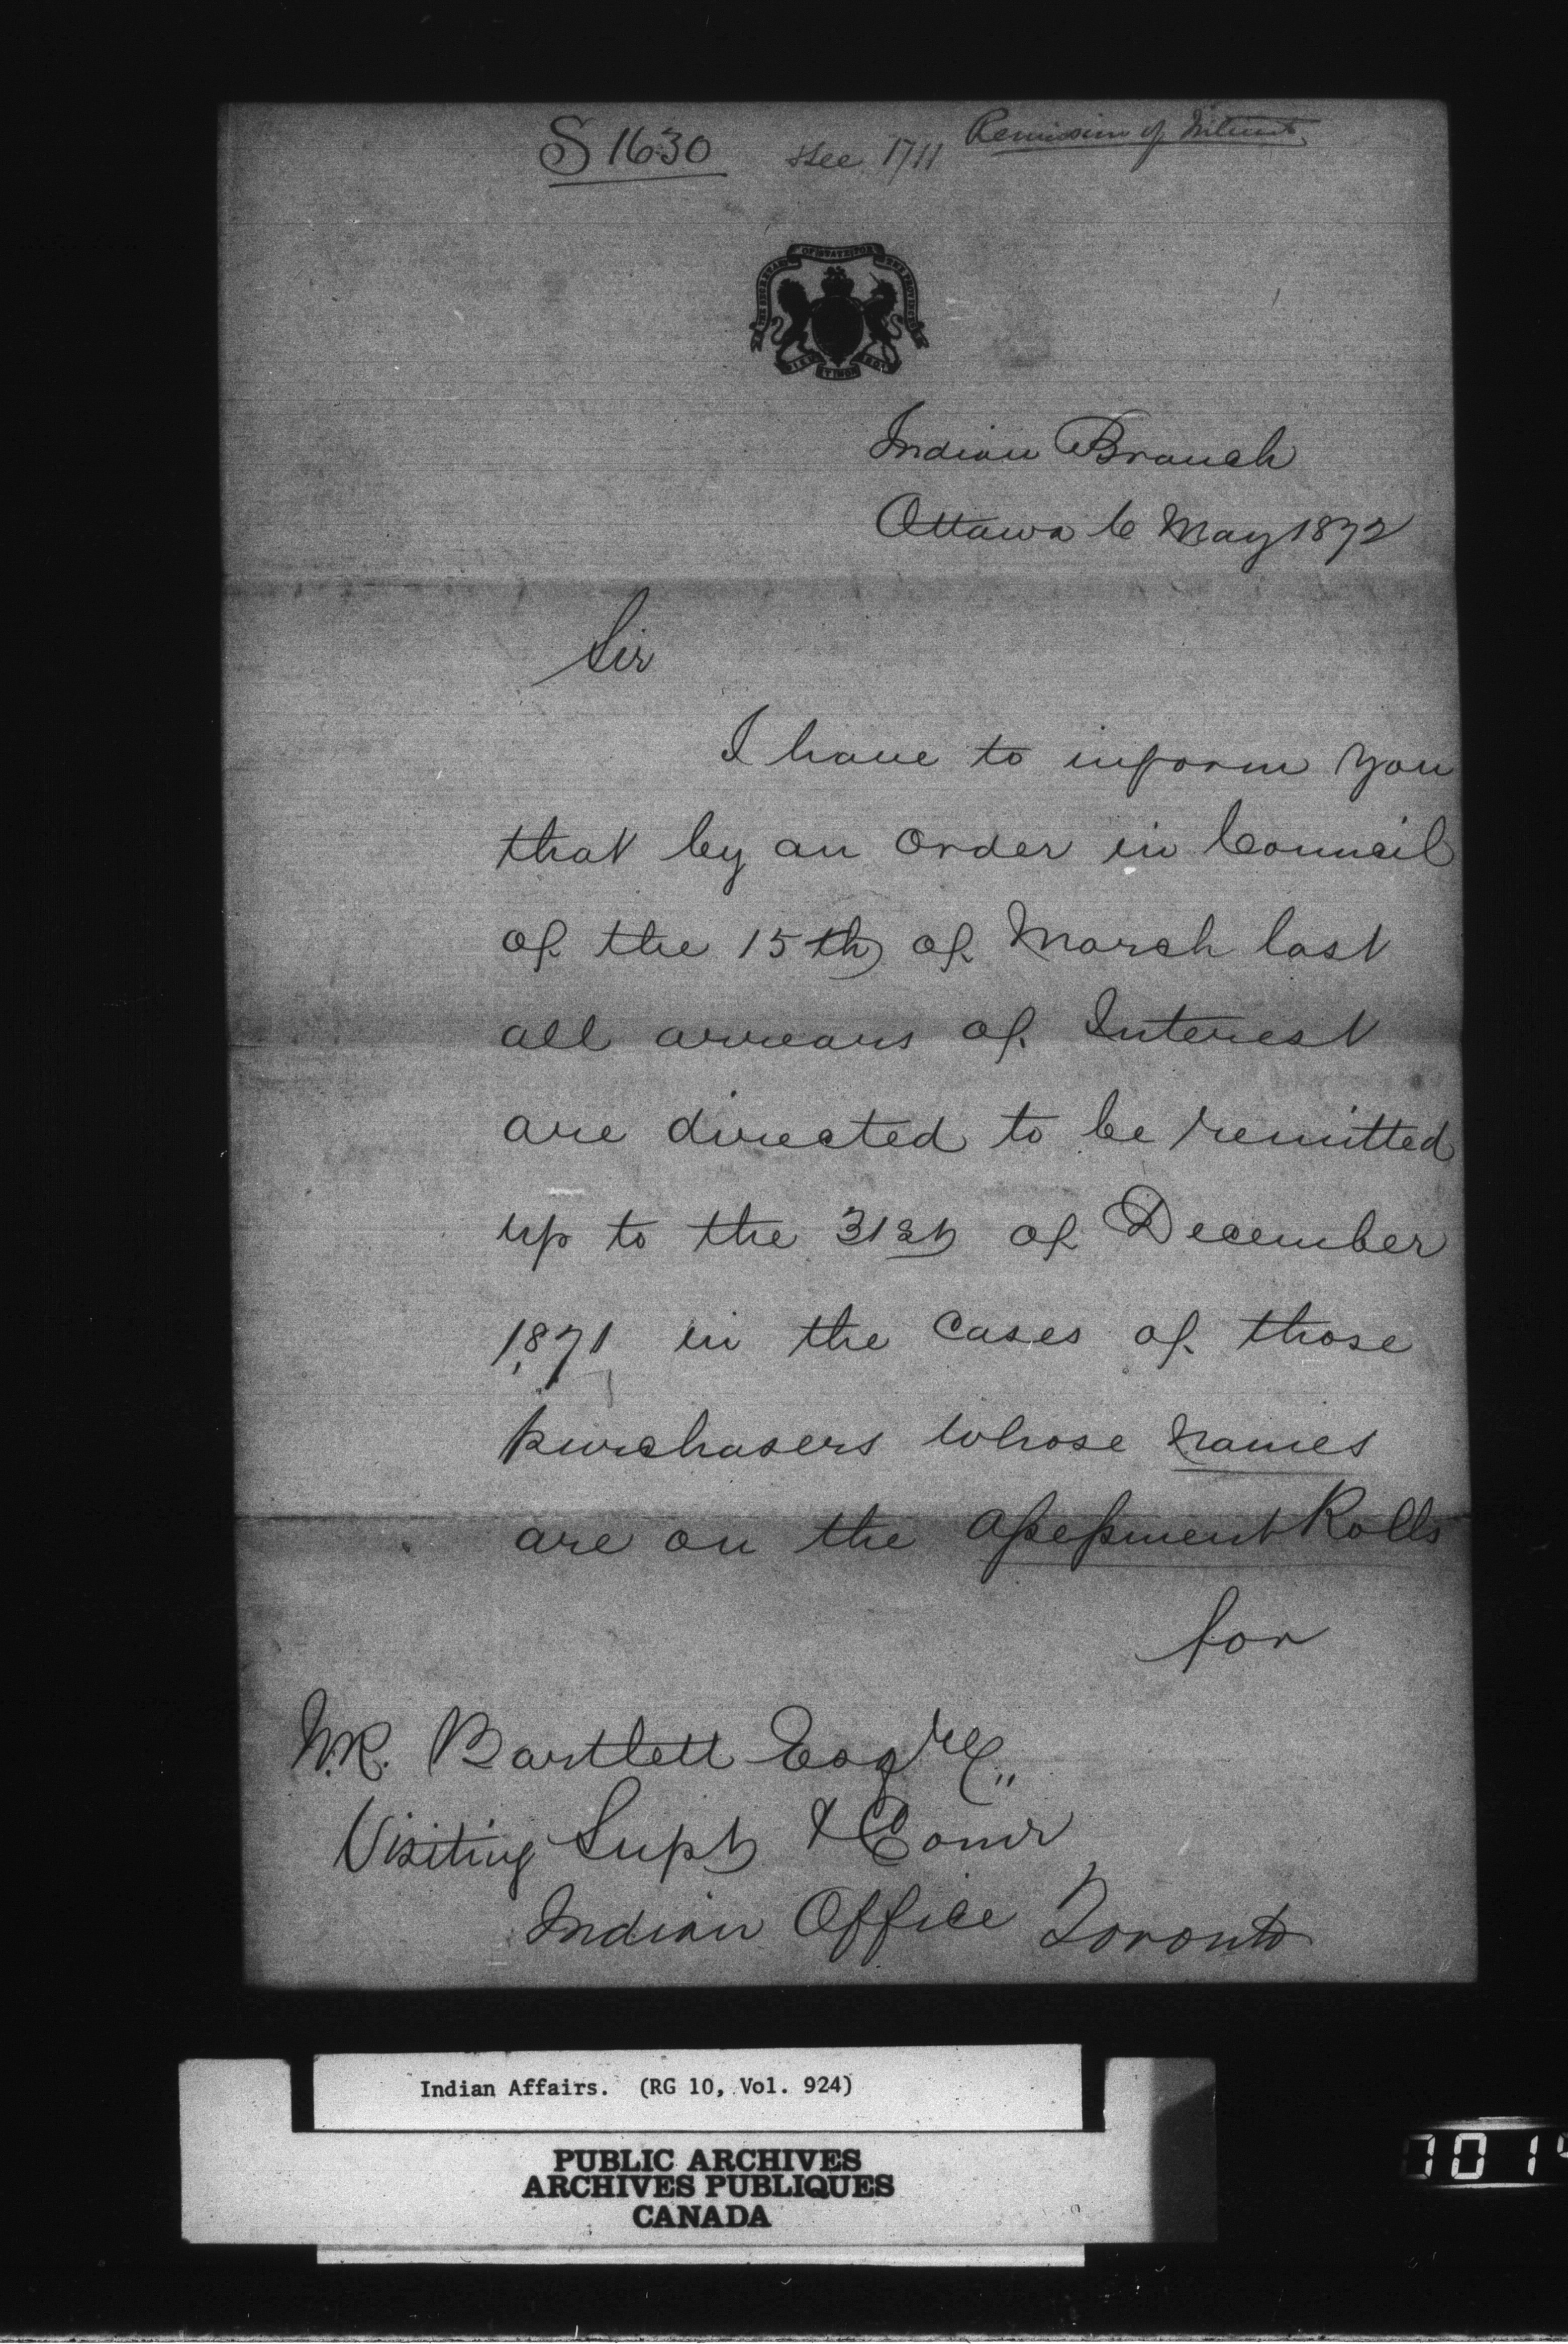 S 1630 See 1711 Remission of Interest
THE SECRETARY OF STATE FOR THE PROVINCES
DIEU ET MON DROIT
Indian Branch
Ottawa 6 May 1872
Sir
I have to inform you
that by an order in Council
of the 15th of March last
all arrears of Interest
are directed to be remitted
up to the 31st of December
1871 in the cases of those
purchasers whose names
are on the assessment Rolls
for
W.R. Bartlett Esqre
Visiting Supt & Comr
Indian Office Toronto
Indian Affairs. (RG 10, Vol. 924)
PUBLIC ARCHIVES
ARCHIVES PUBLIQUES
CANADA